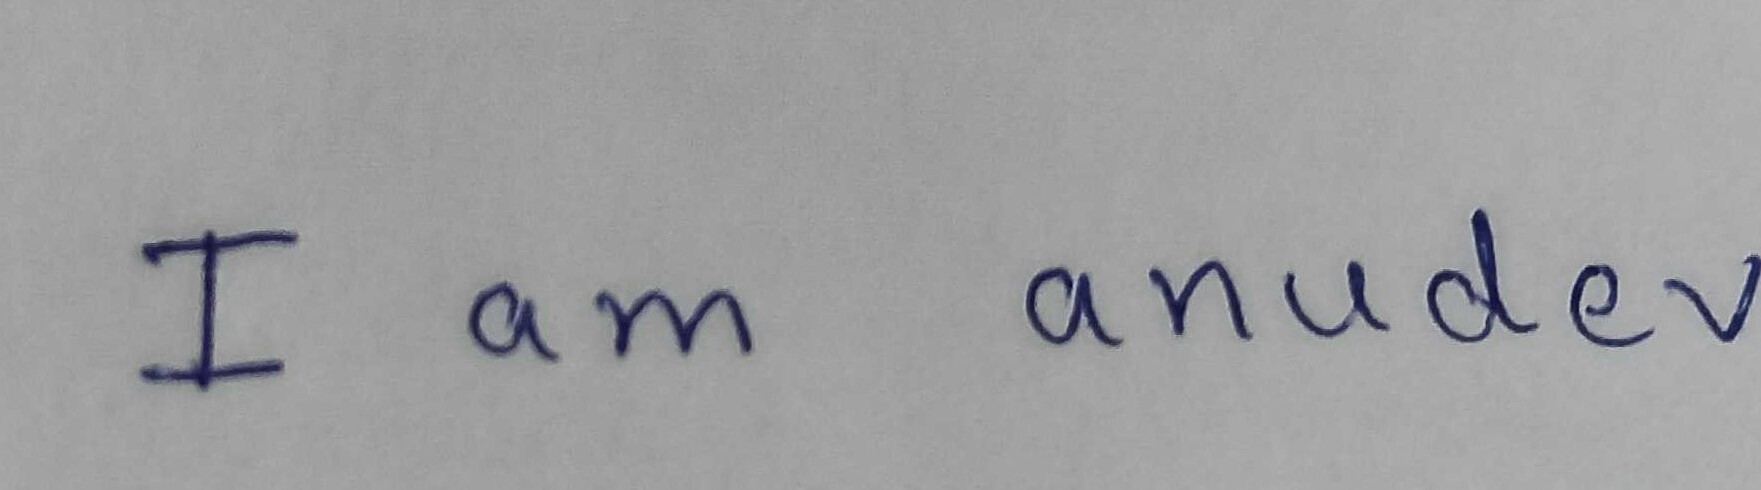 I am anudev